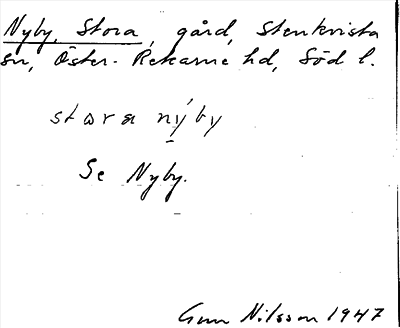 Nyby, Stora, gård, Stenkvista
sn, Öster-Rekarne hd, Söd l.
stora nýby
Se Nyby.
Gun Nilsson 1947